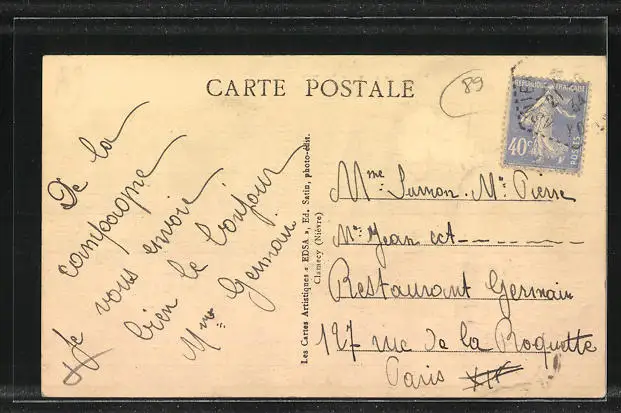 CARTE POSTALE
89
REPUBLIQUE FRANÇAISE
40c
POSTES
De la
campagne
Je vous envoie
bien le bonjour
Mme Germain
Les Cartes Artistiques « EDSA », Ed. Satin, photo-édit.
Clamecy (Nièvre)
Mme Mr Pierre
Mr Jean ect
Restaurant Germain
127 rue de la Roquette
Paris